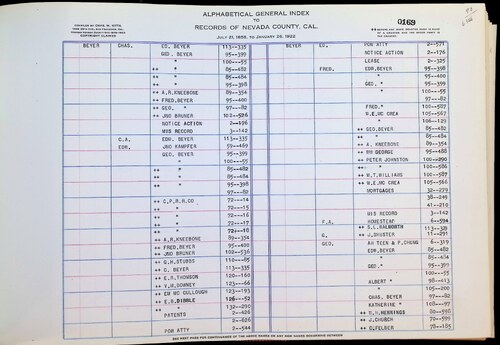 ALPHABETICAL GENERAL INDEX
TO
RECORDS OF NEVADA COUNTY, CAL.
JULY 21, 1856, TO JANUARY 25, 1922
COPYRIGHT CLAIMED
0169
BEYER CHAS. ED. BEYER 113--335
GEO. BEYER 95--399
" 100---55
++ " 85--482
++ " 85--484
++ " 95--398
++ A.R.KNEEBONE 89--354
++ FRED.BEYER 95--400
++ GEO. " 97---82
++ JNO BRUNER 102--536
NOTICE ACTION 2--176
MIS RECORD 3--142
C.A. EDW. BEYER 113--335
EDW. JNO KAMPFER 59--469
GEO. BEYER 95--399
" 100---55
++ " 85--482
++ " 85--484
++ " 95--398
" 97---82
++ C.P.R.R.CO 72---14
++ " 72---15
++ " 72---16
++ " 72---17
++ " 72---18
++ A.R.KNEEBONE 89--354
++ FRED.BEYER 95--400
++ JNO BRUNER 102--536
++ G.H.STUBBS 110---85
++ C. BEYER 113--335
++ E.R.THOMSON 120--160
++ V.H.DOWNEY 123---66
++ EM MC CULLOUGH 123--193
++ E.S.DIBBLE 126---52
++ " 132--290
PATENTS 2--426
" 2--628
POW ATTY 2--544
BEYER ED. POW ATTY 2--571
NOTICE ACTION 2--176
LEASE 2--325
FRED. EDW.BEYER 95--398
" 95--400
GEO. " 95--399
" 100---55
" 97---82
FRED." 100--587
W.E.MC CREA 105--567
" 106--120
++ GEO.BEYER 85--482
++ " 85--484
++ A. KNEEBONE 89--354
++ RH GEORGE 95--488
++ PETER JOHNSTON 100--290
++ " 100--586
++ W.T.WILLIAMS 100--587
++ W.E.MC CREA 105--566
MORTGAGES 32--279
" 38--249
" 41--210
MIS RECORD 3--142
F.A. HOMESTEAD 6--594
++ S.L.HALWORTH 113--328
G. ++ J.SHUSTER 11--291
GEO. AH TEEN & P.CHUNG 6--319
EDW.BEYER 85--482
" 85--484
GEO." 95--399
" 100---55
ALBERT " 98--413
" 105--288
CHAS. BEYER 97---82
KATHERINE " 108---97
++ S.H.HENNINGS 50--590
++ J.CHURCH 70--399
++ D.FELBER 78--185
SEE NEXT PAGE FOR CONTINUANCE OF THE ABOVE NAMES OR ANY NEW NAMES OCCURRING BETWEEN